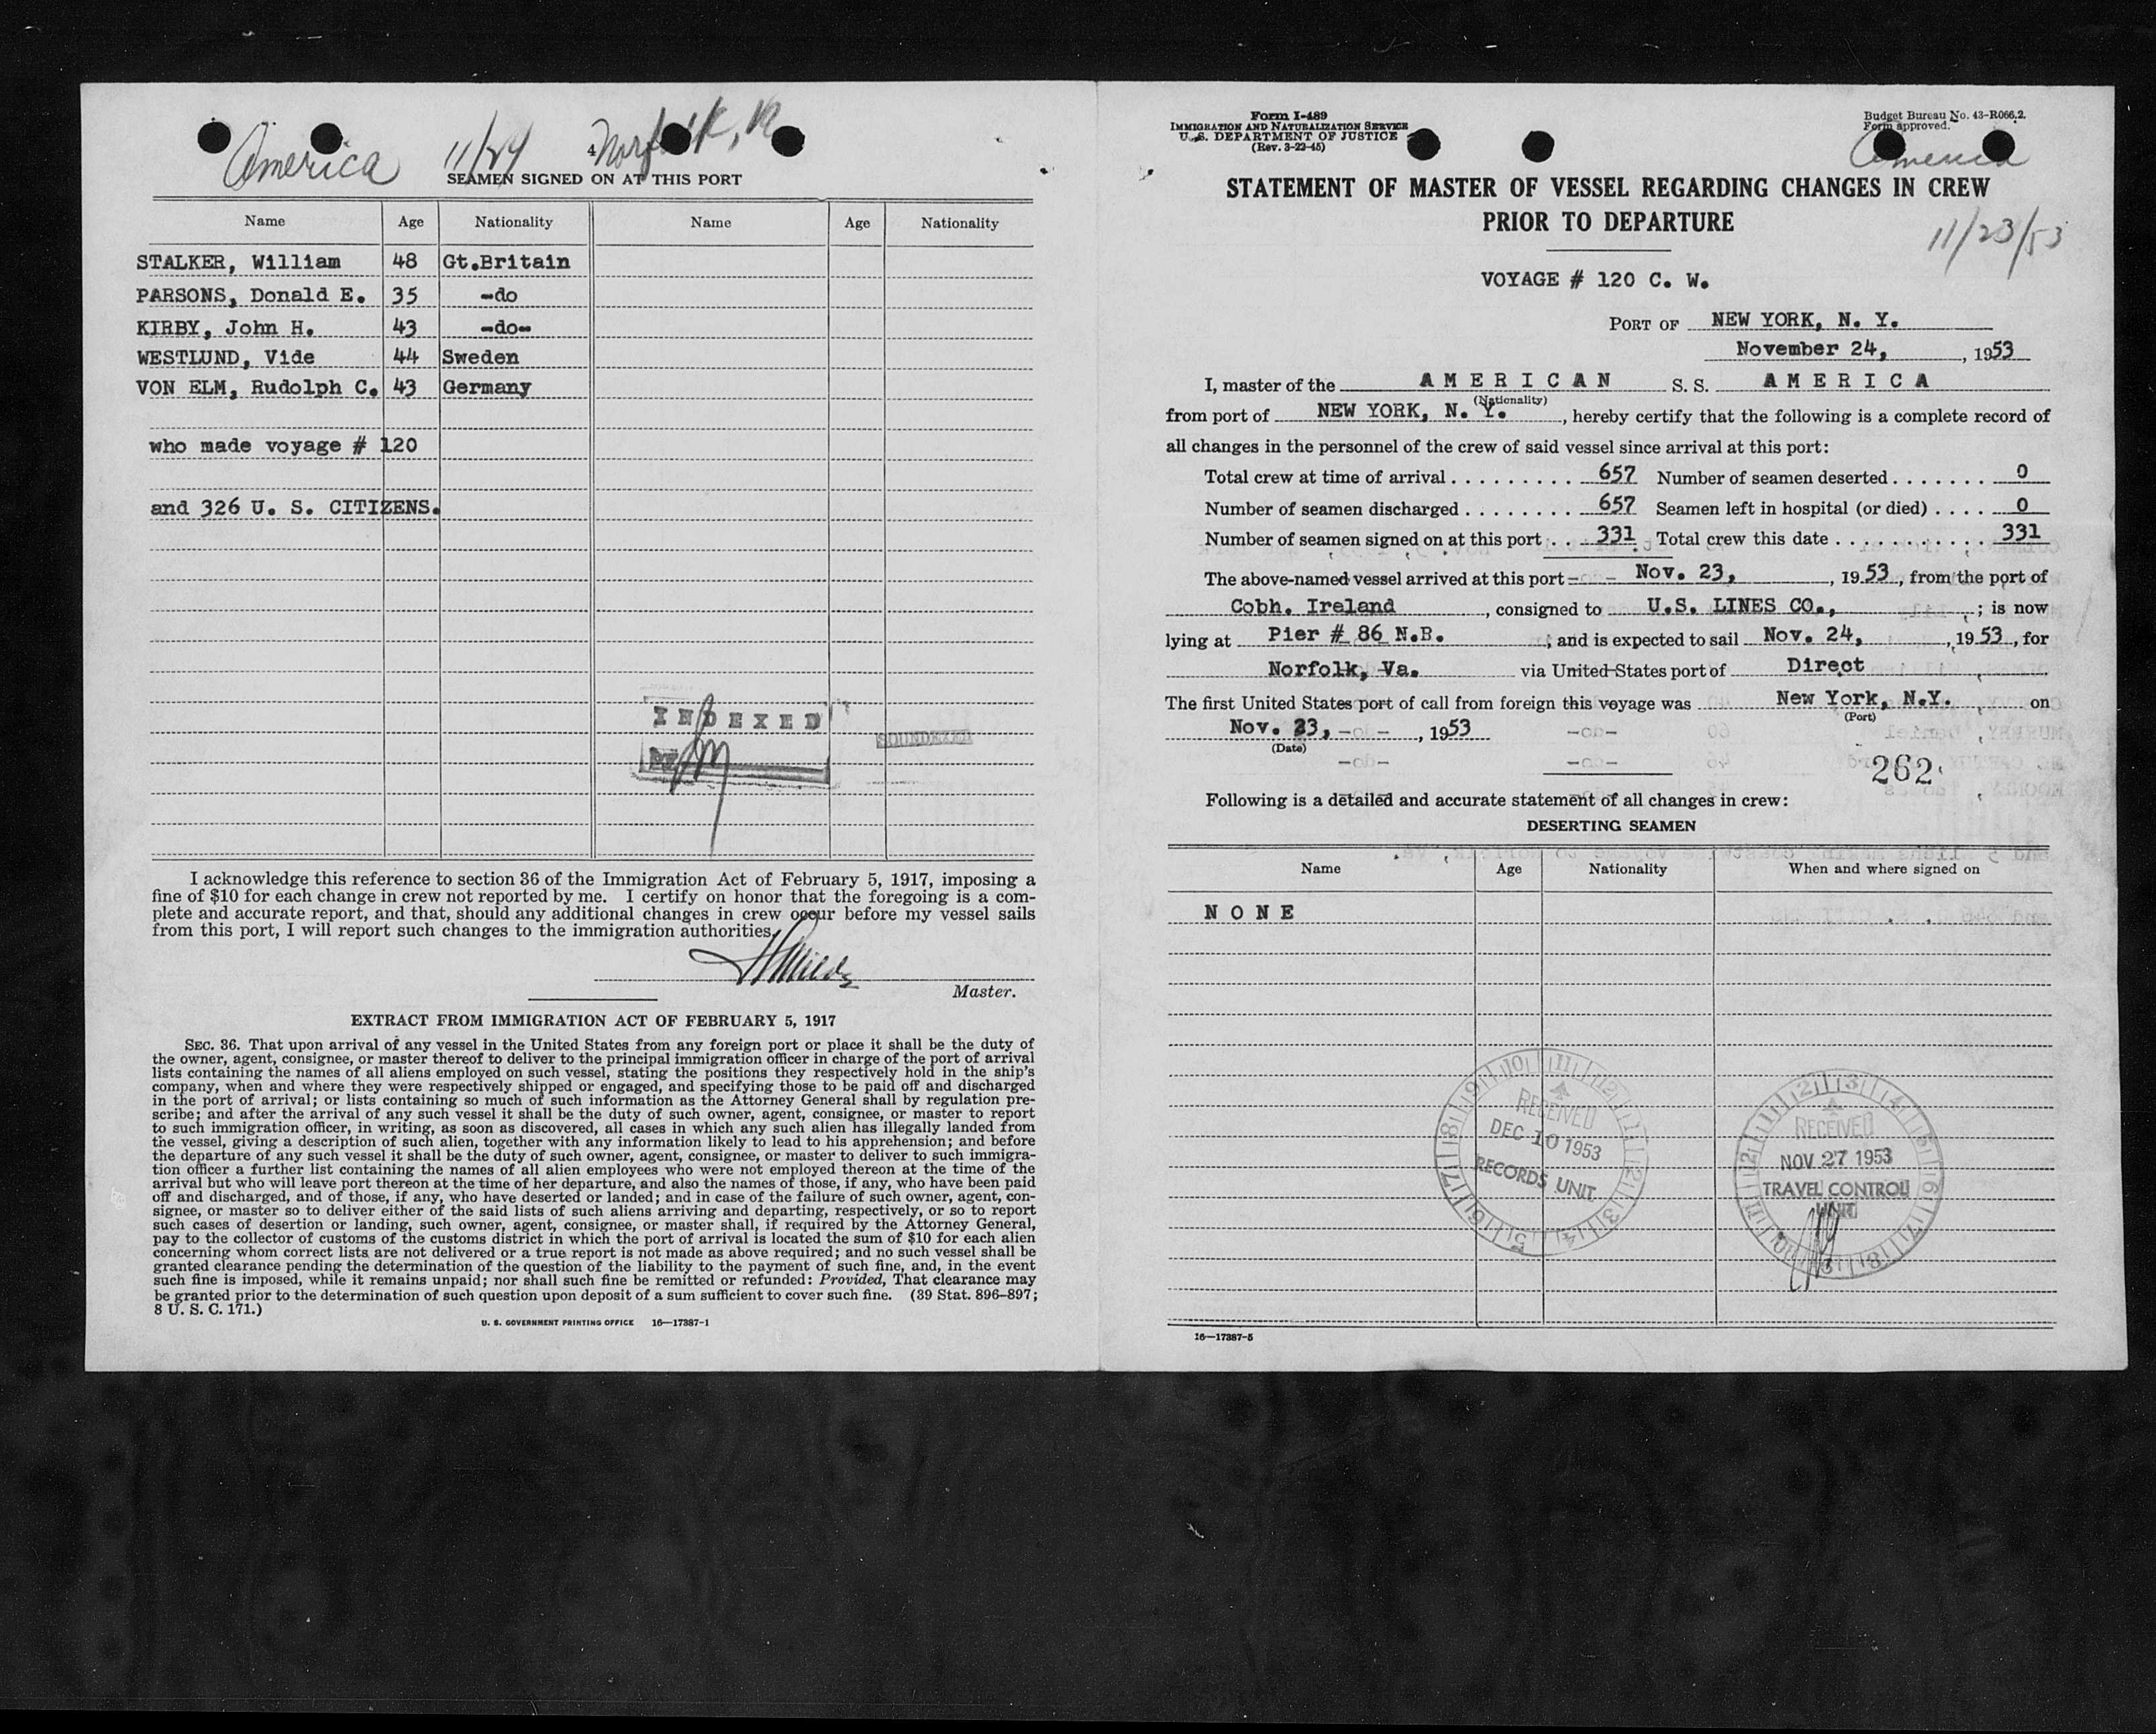 America 11/24 Norfolk, V
4
SEAMEN SIGNED ON AT THIS PORT
Name Age Nationality Name Age Nationality
STALKER, William 48 Gt.Britain
PARSONS, Donald E. 35 -do
KIRBY, John H. 43 -do-
WESTLUND, Vide 44 Sweden
VON ELM, Rudolph C. 43 Germany
who made voyage # 120
and 326 U. S. CITIZENS.
INDEXED
SOUNDEXED
I acknowledge this reference to section 36 of the Immigration Act of February 5, 1917, imposing a
fine of $10 for each change in crew not reported by me. I certify on honor that the foregoing is a com-
plete and accurate report, and that, should any additional changes in crew occur before my vessel sails
from this port, I will report such changes to the immigration authorities.
Master.
EXTRACT FROM IMMIGRATION ACT OF FEBRUARY 5, 1917
SEC. 36. That upon arrival of any vessel in the United States from any foreign port or place it shall be the duty of
the owner, agent, consignee, or master thereof to deliver to the principal immigration officer in charge of the port of arrival
lists containing the names of all aliens employed on such vessel, stating the positions they respectively hold in the ship's
company, when and where they were respectively shipped or engaged, and specifying those to be paid off and discharged
in the port of arrival; or lists containing so much of such information as the Attorney General shall by regulation pre-
scribe; and after the arrival of any such vessel it shall be the duty of such owner, agent, consignee, or master to report
to such immigration officer, in writing, as soon as discovered, all cases in which any such alien has illegally landed from
the vessel, giving a description of such alien, together with any information likely to lead to his apprehension; and before
the departure of any such vessel it shall be the duty of such owner, agent, consignee, or master to deliver to such immigra-
tion officer a further list containing the names of all alien employees who were not employed thereon at the time of the
arrival but who will leave port thereon at the time of her departure, and also the names of those, if any, who have been paid
off and discharged, and of those, if any, who have deserted or landed; and in case of the failure of such owner, agent, con-
signee, or master so to deliver either of the said lists of such aliens arriving and departing, respectively, or so to report
such cases of desertion or landing, such owner, agent, consignee, or master shall, if required by the Attorney General,
pay to the collector of customs of the customs district in which the port of arrival is located the sum of $10 for each alien
concerning whom correct lists are not delivered or a true report is not made as above required; and no such vessel shall be
granted clearance pending the determination of the question of the liability to the payment of such fine, and, in the event
such fine is imposed, while it remains unpaid; nor shall such fine be remitted or refunded: Provided, That clearance may
be granted prior to the determination of such question upon deposit of a sum sufficient to cover such fine. (39 Stat. 896–897;
8 U. S. C. 171.)
U. S. GOVERNMENT PRINTING OFFICE 16—17387-1
Form I-489
IMMIGRATION AND NATURALIZATION SERVICE
U. S. DEPARTMENT OF JUSTICE
(Rev. 3-22-45)
Budget Bureau No. 43-R066.2.
Form approved.
America
STATEMENT OF MASTER OF VESSEL REGARDING CHANGES IN CREW
PRIOR TO DEPARTURE
11/23/53
VOYAGE # 120 C. W.
PORT OF NEW YORK, N. Y.
November 24, , 1953
I, master of the AMERICAN S. S. AMERICA
(Nationality)
from port of NEW YORK, N. Y. , hereby certify that the following is a complete record of
all changes in the personnel of the crew of said vessel since arrival at this port:
Total crew at time of arrival . . . . . . . . . 657 Number of seamen deserted . . . . . . . 0
Number of seamen discharged . . . . . . . . 657 Seamen left in hospital (or died) . . . . 0
Number of seamen signed on at this port . . 331 Total crew this date . . . . . . . . . . . 331
The above-named vessel arrived at this port Nov. 23, , 1953, from the port of
Cobh. Ireland , consigned to U.S. LINES CO., ; is now
lying at Pier # 86 N.R. ; and is expected to sail Nov. 24, , 1953, for
Norfolk, Va. via United States port of Direct
The first United States port of call from foreign this voyage was New York, N.Y. on
(Port)
Nov. 23, , 1953
(Date)
262
Following is a detailed and accurate statement of all changes in crew:
DESERTING SEAMEN
Name Age Nationality When and where signed on
NONE
RECEIVED
DEC 10 1953
RECORDS UNIT
RECEIVED
NOV 27 1953
TRAVEL CONTROL
UNIT
16—17387-5